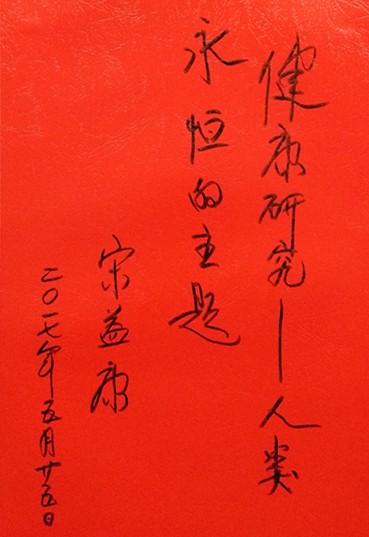 健康研究—人类
永恒的主题
宋益康
二〇一七年五月廿五日